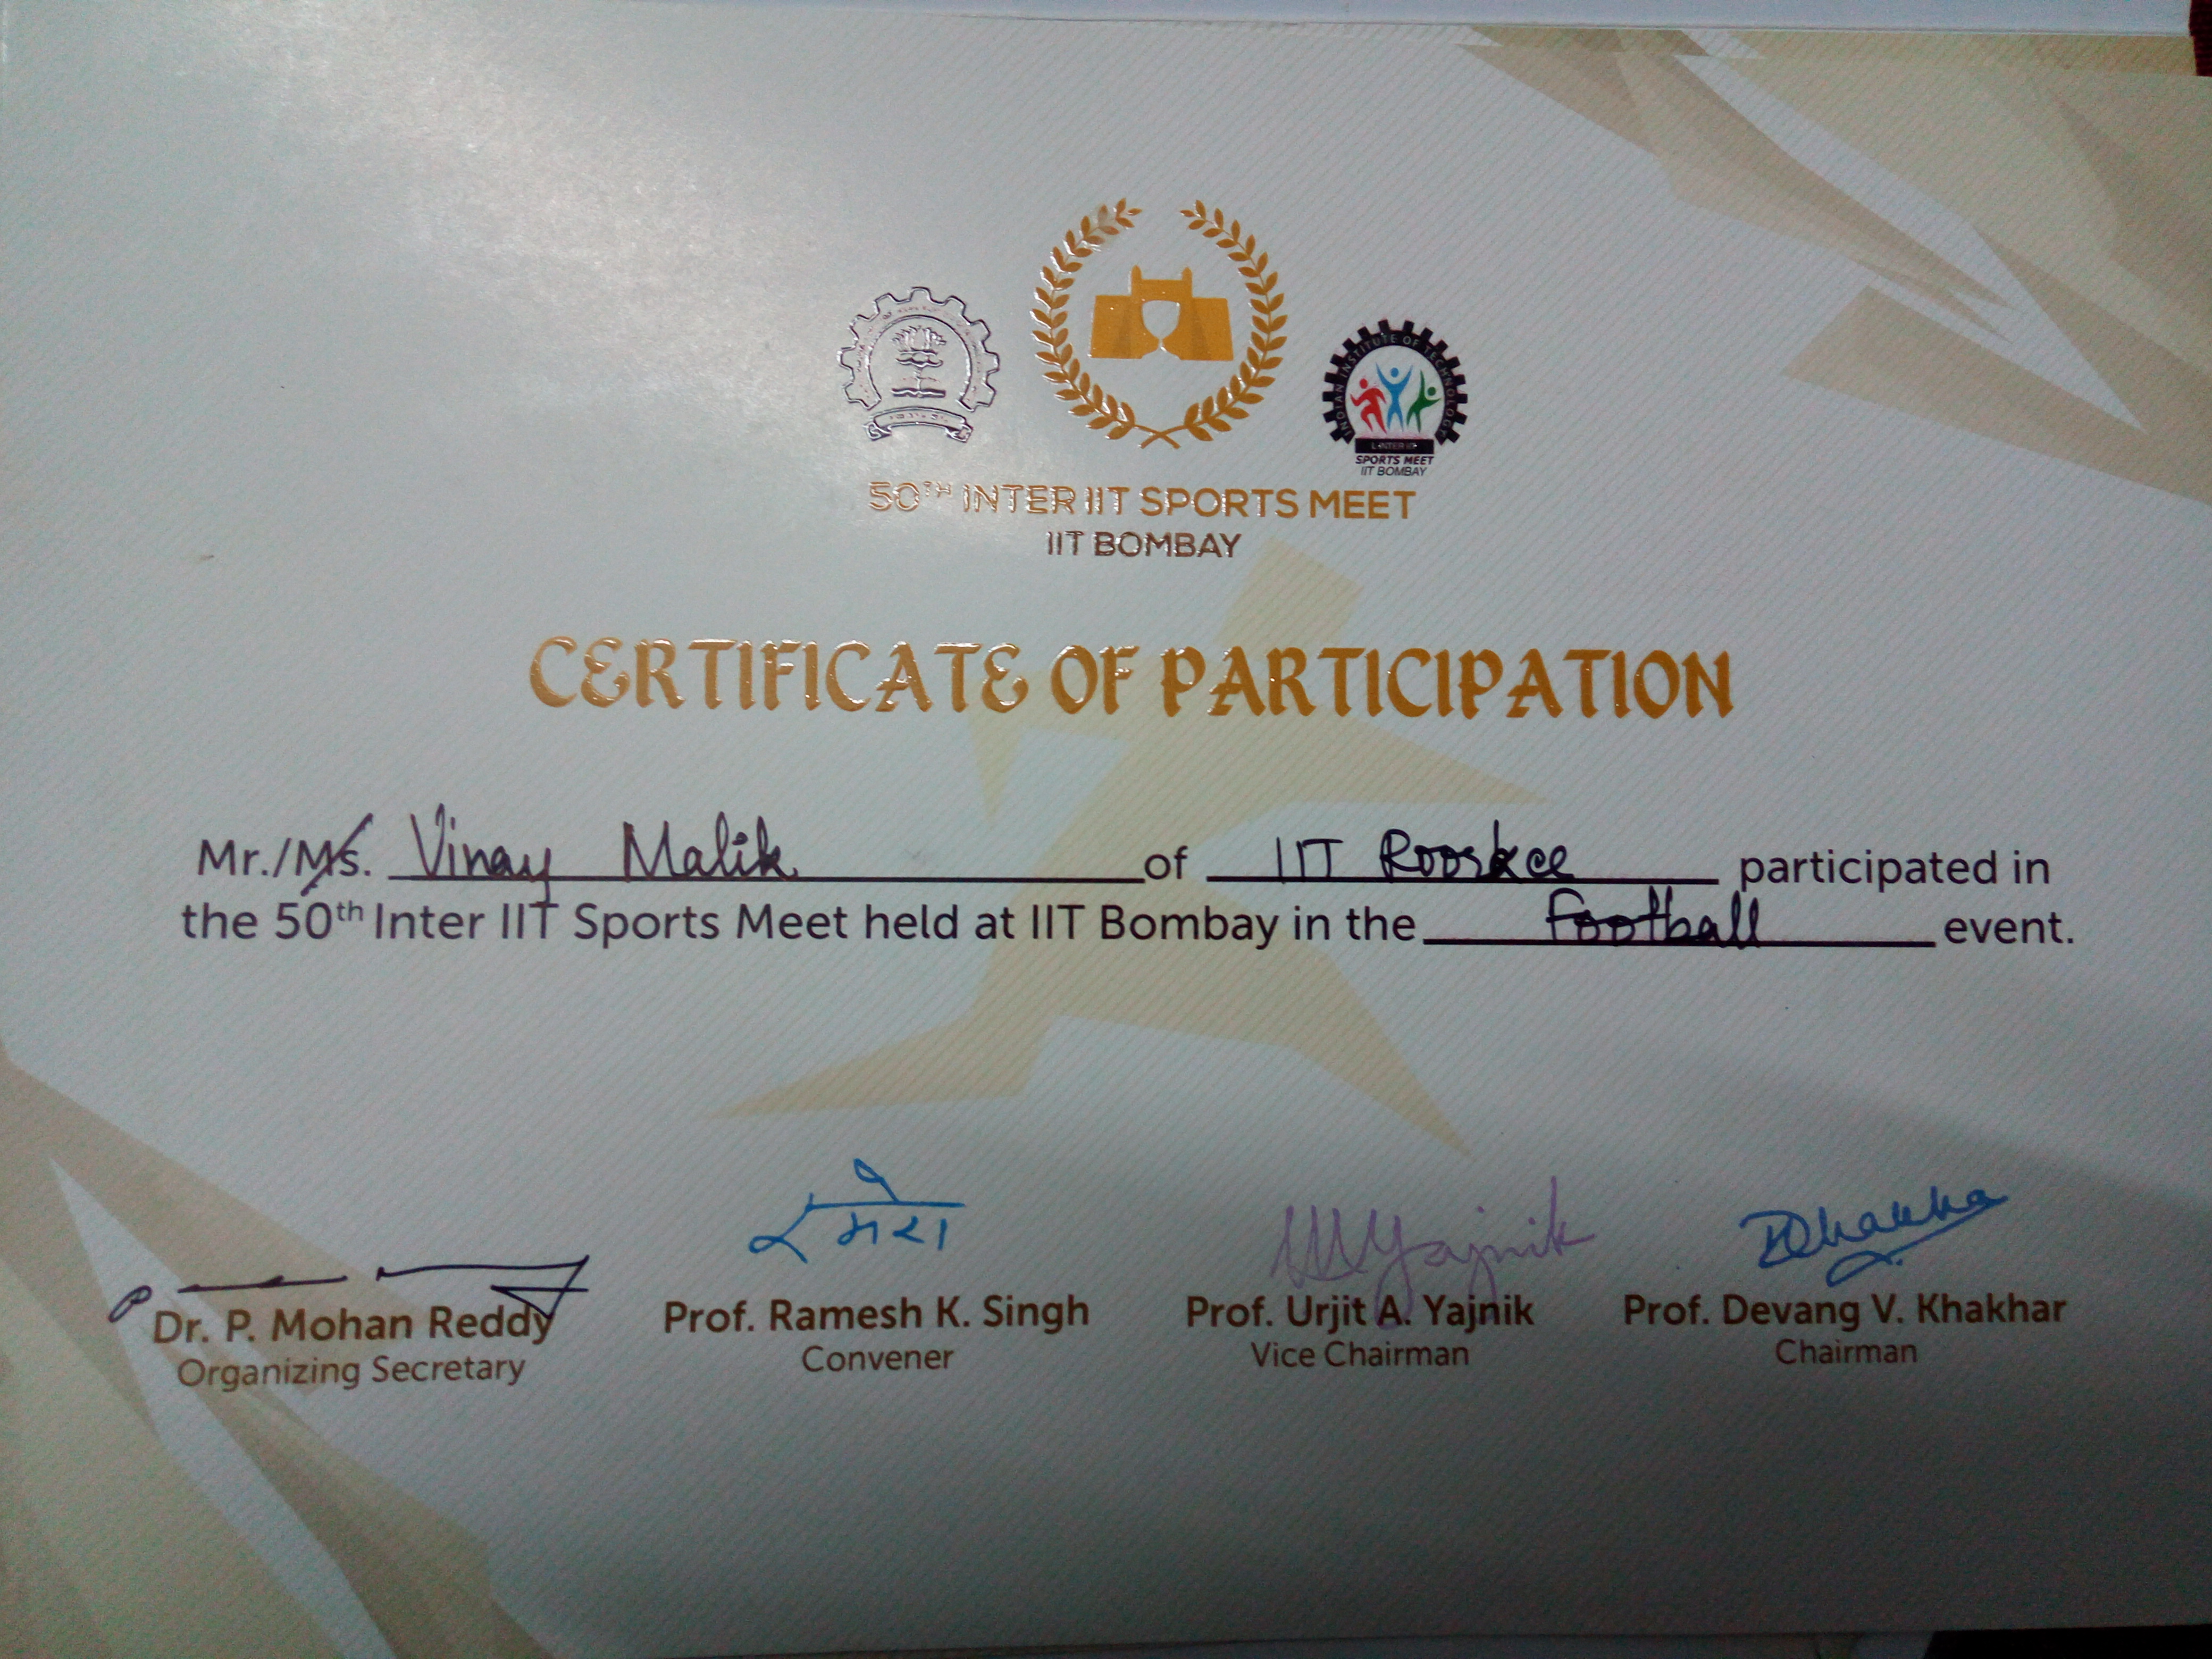 INDIAN INSTITUTE OF TECHNOLOGY
SPORTS MEET
IIT BOMBAY
50TH INTER IIT SPORTS MEET
IIT BOMBAY
CERTIFICATE OF PARTICIPATION
Mr./Ms. Vinay Malik of IIT Roorkee participated in
the 50th Inter IIT Sports Meet held at IIT Bombay in the football event.
रमेश
Yajnik
Dr. P. Mohan Reddy
Organizing Secretary
Prof. Ramesh K. Singh
Convener
Prof. Urjit A. Yajnik
Vice Chairman
Prof. Devang V. Khakhar
Chairman